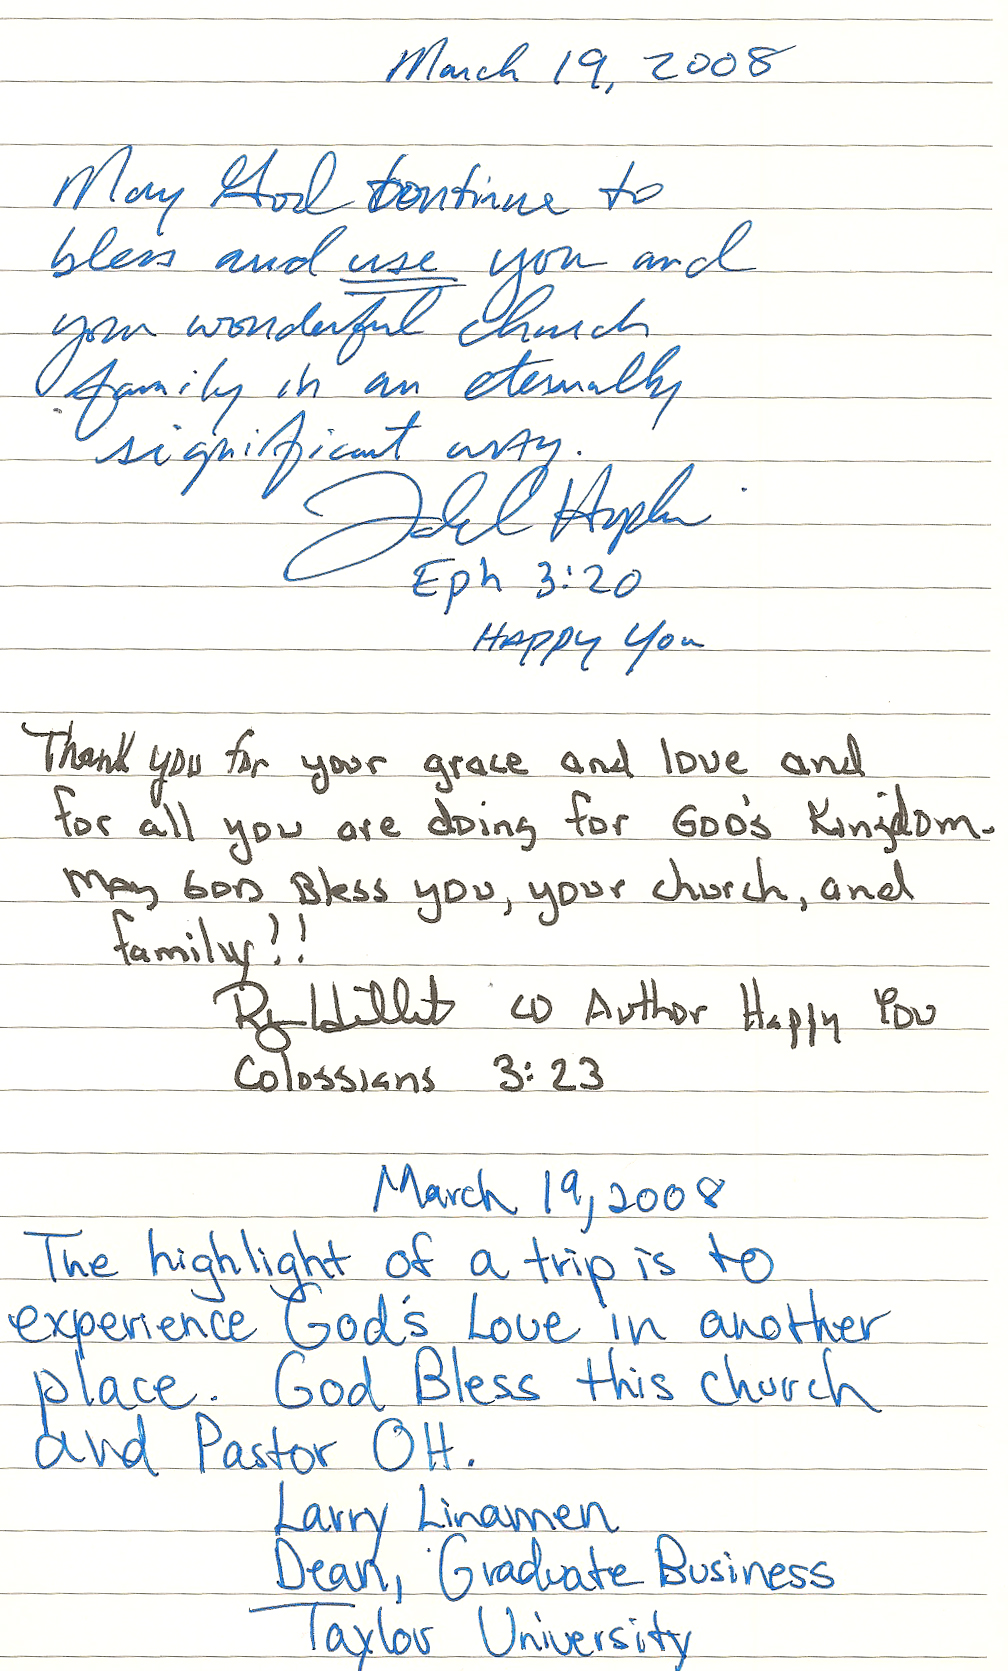 March 19, 2008
May God continue to
bless and use you and
your wonderful church
family in an eternally
significant way.
Eph 3:20
HAPPY You
Thank you for your grace and love and
for all you are doing for GOD's Kingdom.
May GOD Bless you, your church, and
family!!
CO Author Happy You
Colossians 3:23
March 19, 2008
The highlight of a trip is to
experience God's Love in another
place. God Bless this church
and Pastor OH.
Larry Linamen
Dean, Graduate Business
Taylor University